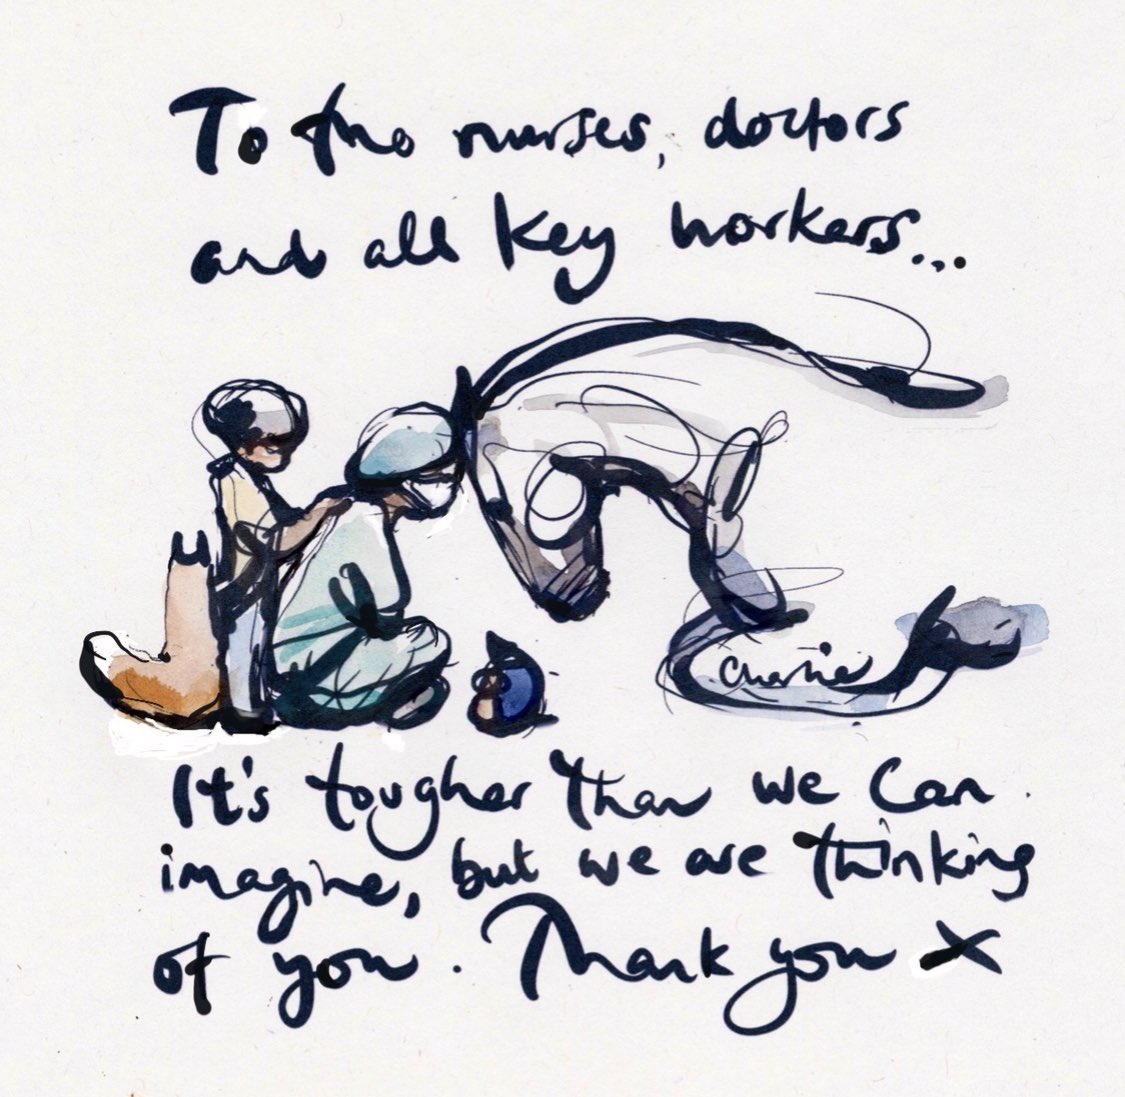 To the nurses, doctors
and all key workers...
Charlie
It's tougher than we can
imagine, but we are thinking
of you. Thank you x